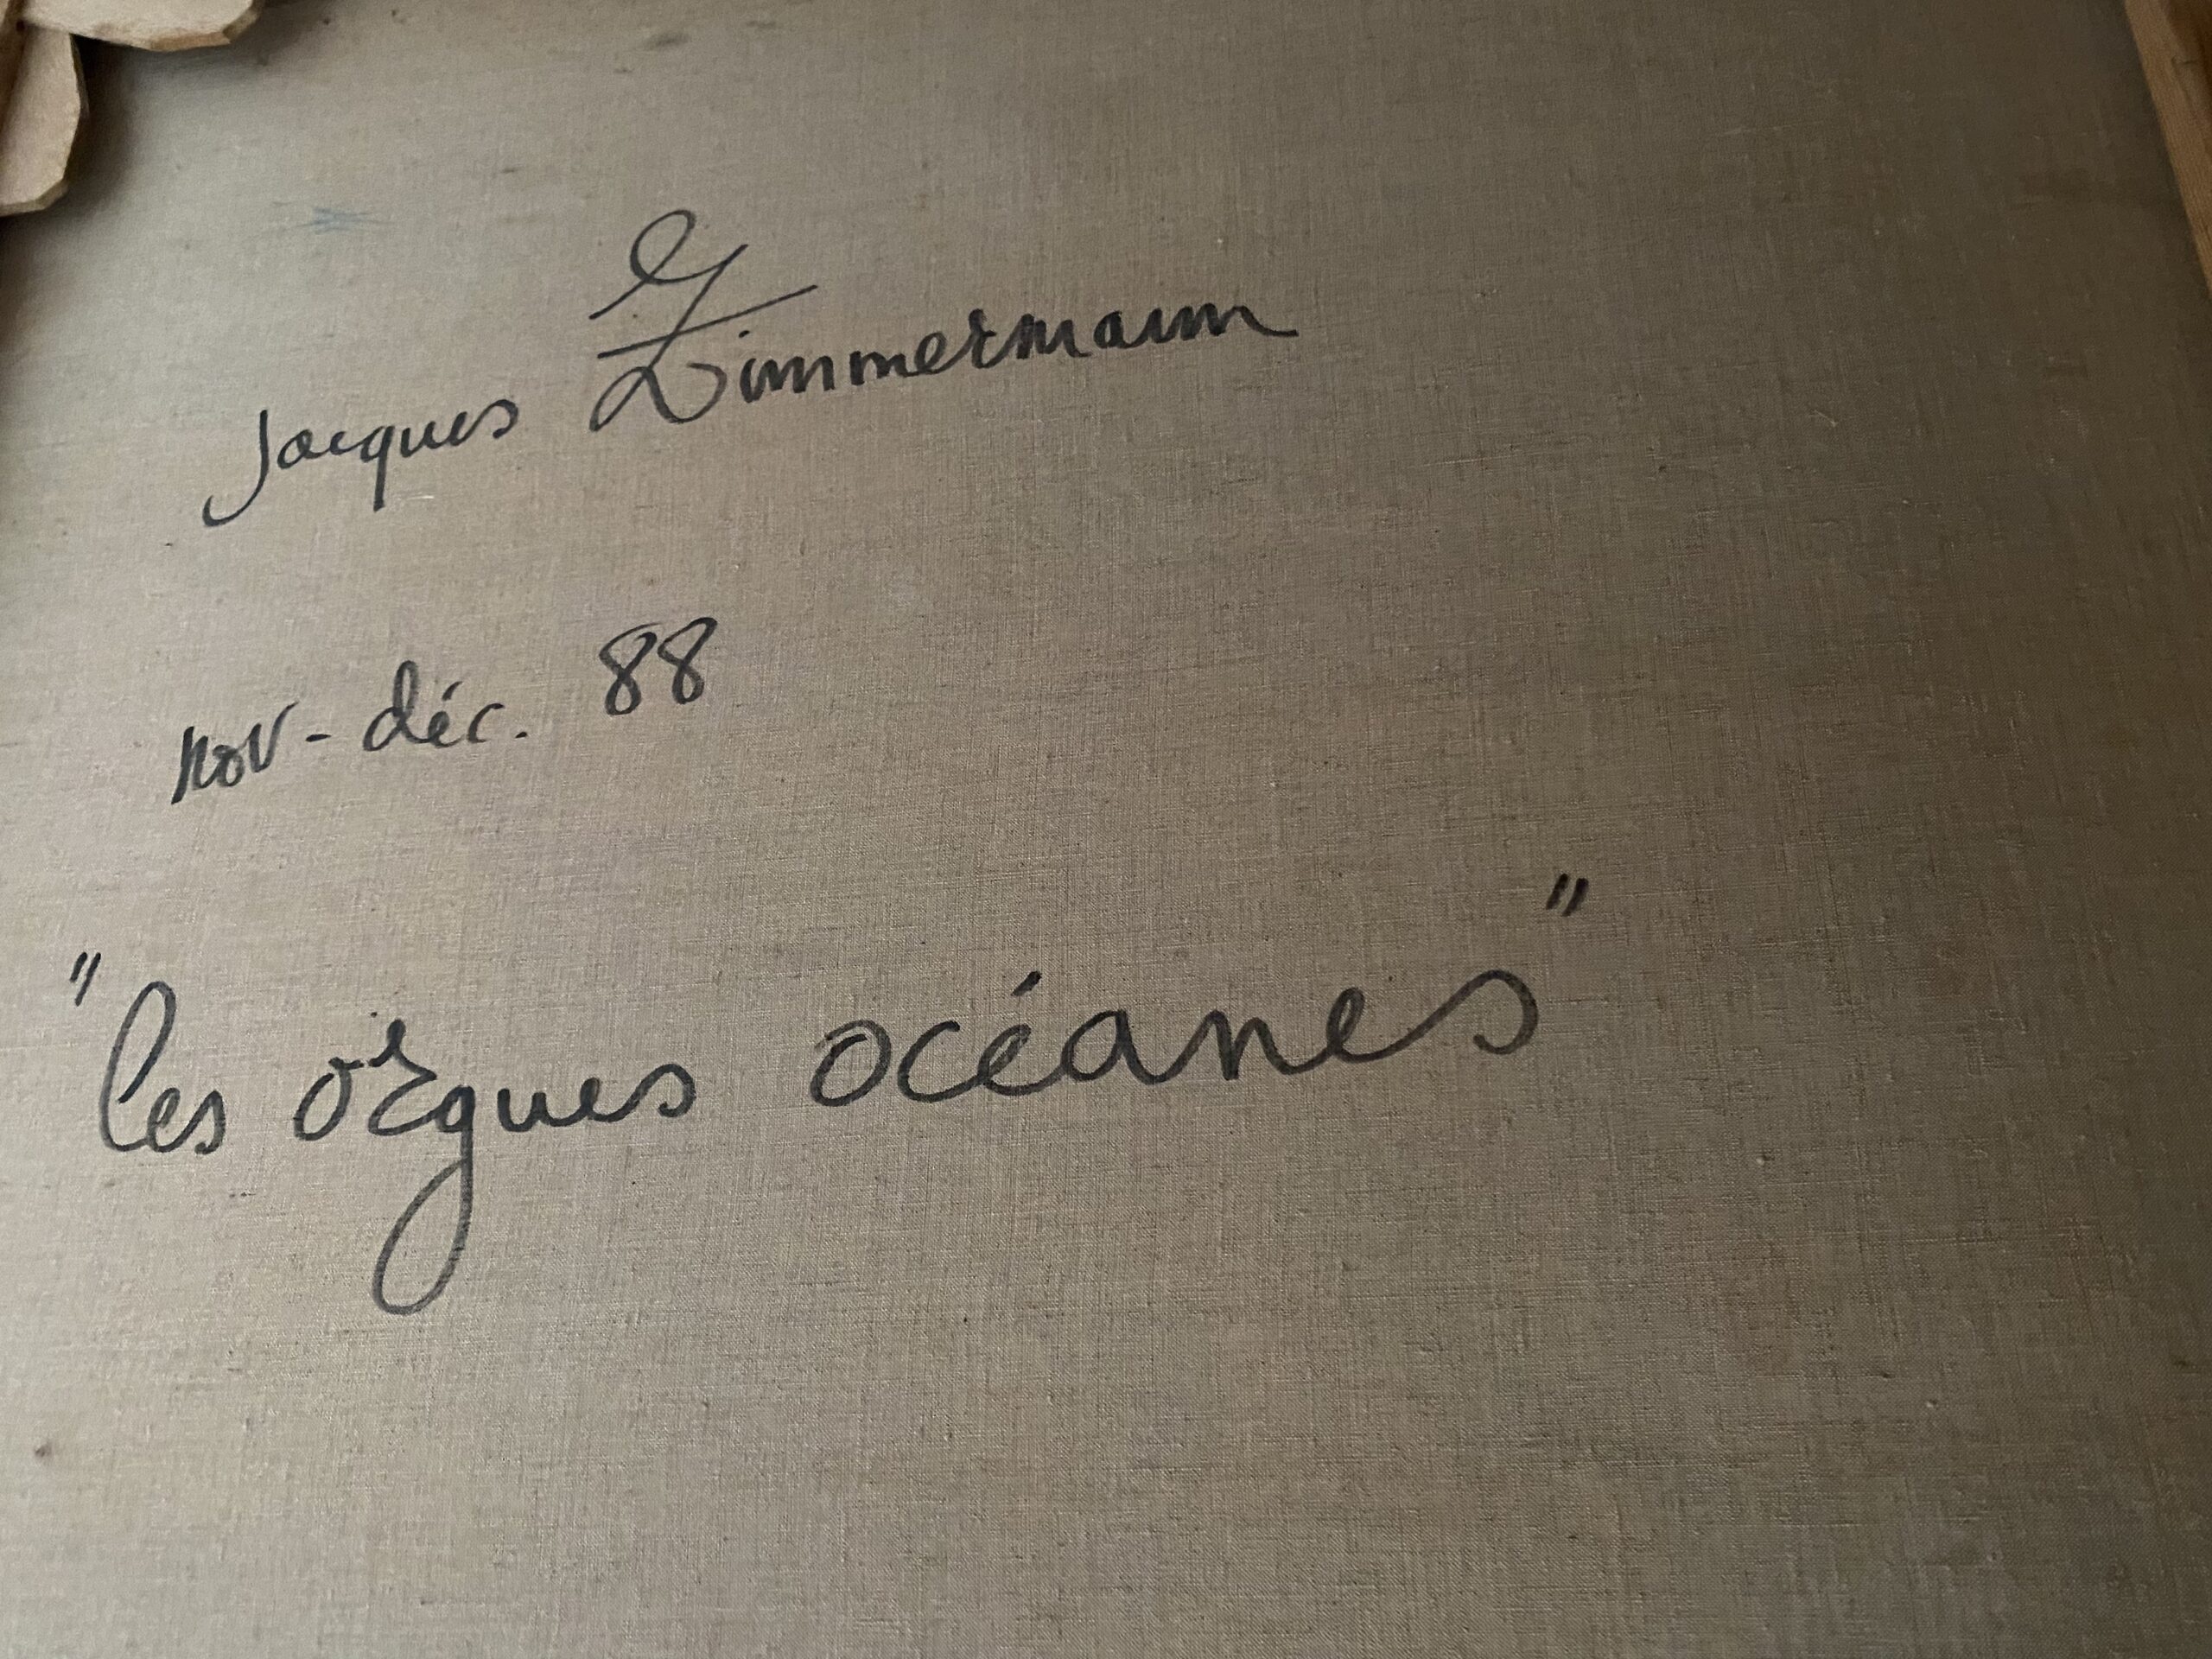 Jacques Zimmermann
nov - déc. 88
"les orgues océanes"